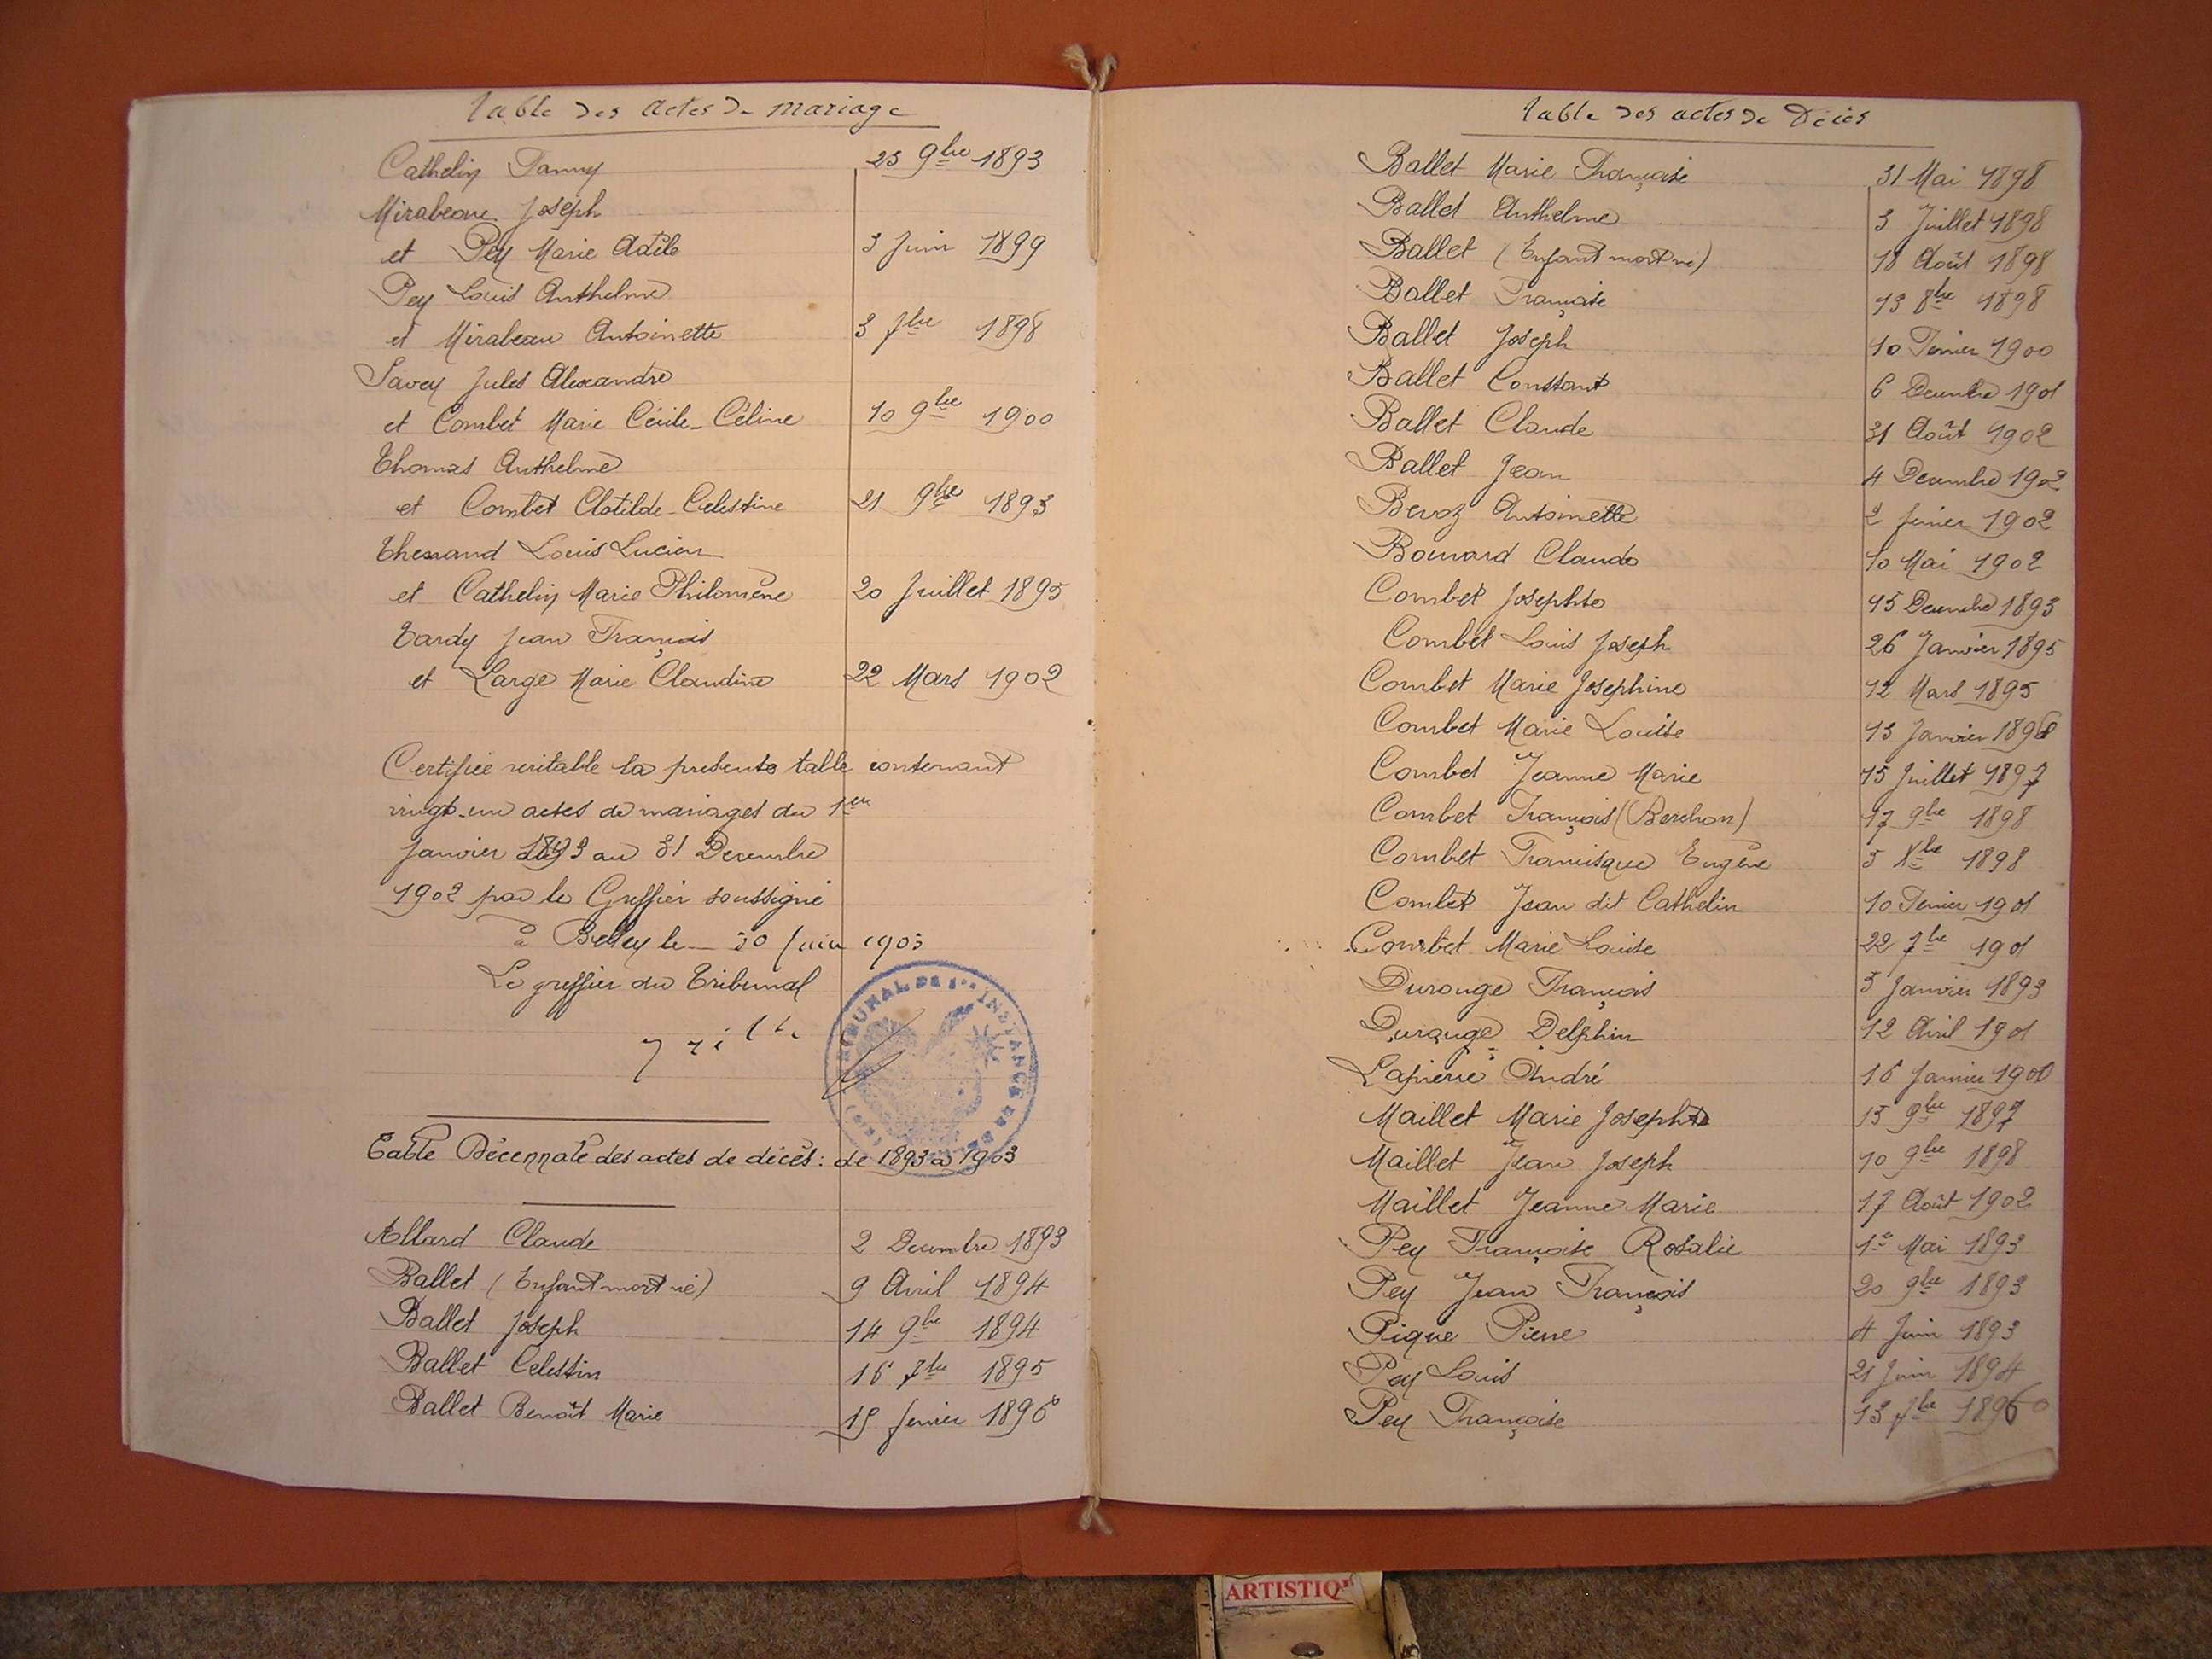 Table des actes de mariage
Cathelin Fanny 23 9bre 1893
Mirabeau Joseph
et Pey Marie Adèle 3 Juin 1899
Pey Louis Anthelme
et Mirabeau Antoinette 3 7bre 1898
Savey Jules Alexandre
et Combet Marie Cécile-Céline 10 9bre 1900
Thomas Anthelme
et Combet Clotilde-Celestine 21 9bre 1893
Louis Lucien
et Cathelin Marie Philomène 20 Juillet 1895
Tardy Jean François
et Large Marie Claudine 22 Mars 1902
Certifiée veritable la presente table contenant
vingt-un actes de mariages du 1er
Janvier 1893 au 31 Decembre
1902 par le Greffier soussigné
à Belley le 30 Juin 1903
Le greffier du Tribunal
TRIBUNAL DE 1re INSTANCE
Table Décennale des actes de décès: de 1893 à 1903
Allard Claude 2 Decembre 1893
Ballet (Enfant mort né) 9 Avril 1894
Ballet Joseph 14 9bre 1894
Ballet Celestin 16 7bre 1895
Ballet Benoît Marie 15 fevrier 1896
Table des actes de Décès
Ballet Marie Françoise 31 Mai 1898
Ballet Anthelme 3 Juillet 1898
Ballet (Enfant mort né) 18 Août 1898
Ballet Françoise 13 8bre 1898
Ballet Joseph 10 Fevrier 1900
Ballet Constant 6 Decembre 1901
Ballet Claude 31 Août 1902
Ballet Jean 4 Decembre 1902
Antoinette 2 fevrier 1902
Claude 10 Mai 1902
Combet Josephte 15 Decembre 1893
Combet Louis Joseph 26 Janvier 1895
Combet Marie Josephine 12 Mars 1895
Combet Marie Louise 13 Janvier 1896
Combet Jeanne Marie 15 Juillet 1897
Combet François (Berchon) 17 9bre 1898
Combet Francisque Eugène 5 Xbre 1898
Combet Jean dit Cathelin 10 Fevrier 1901
Combet Marie Louise 22 7bre 1901
Durouge François 5 Janvier 1893
Delphin 12 Avril 1901
Lapierre André 16 Janvier 1900
Maillet Marie Josephte 15 9bre 1897
Maillet Jean Joseph 10 9bre 1898
Maillet Jeanne Marie 17 Août 1902
Pey Françoise Rosalie 1er Mai 1893
Pey Jean François 20 9bre 1893
Pique Pierre 4 Juin 1893
Pey Louis 21 Juin 1894
Pey Françoise 13 7bre 1896
ARTISTIQ